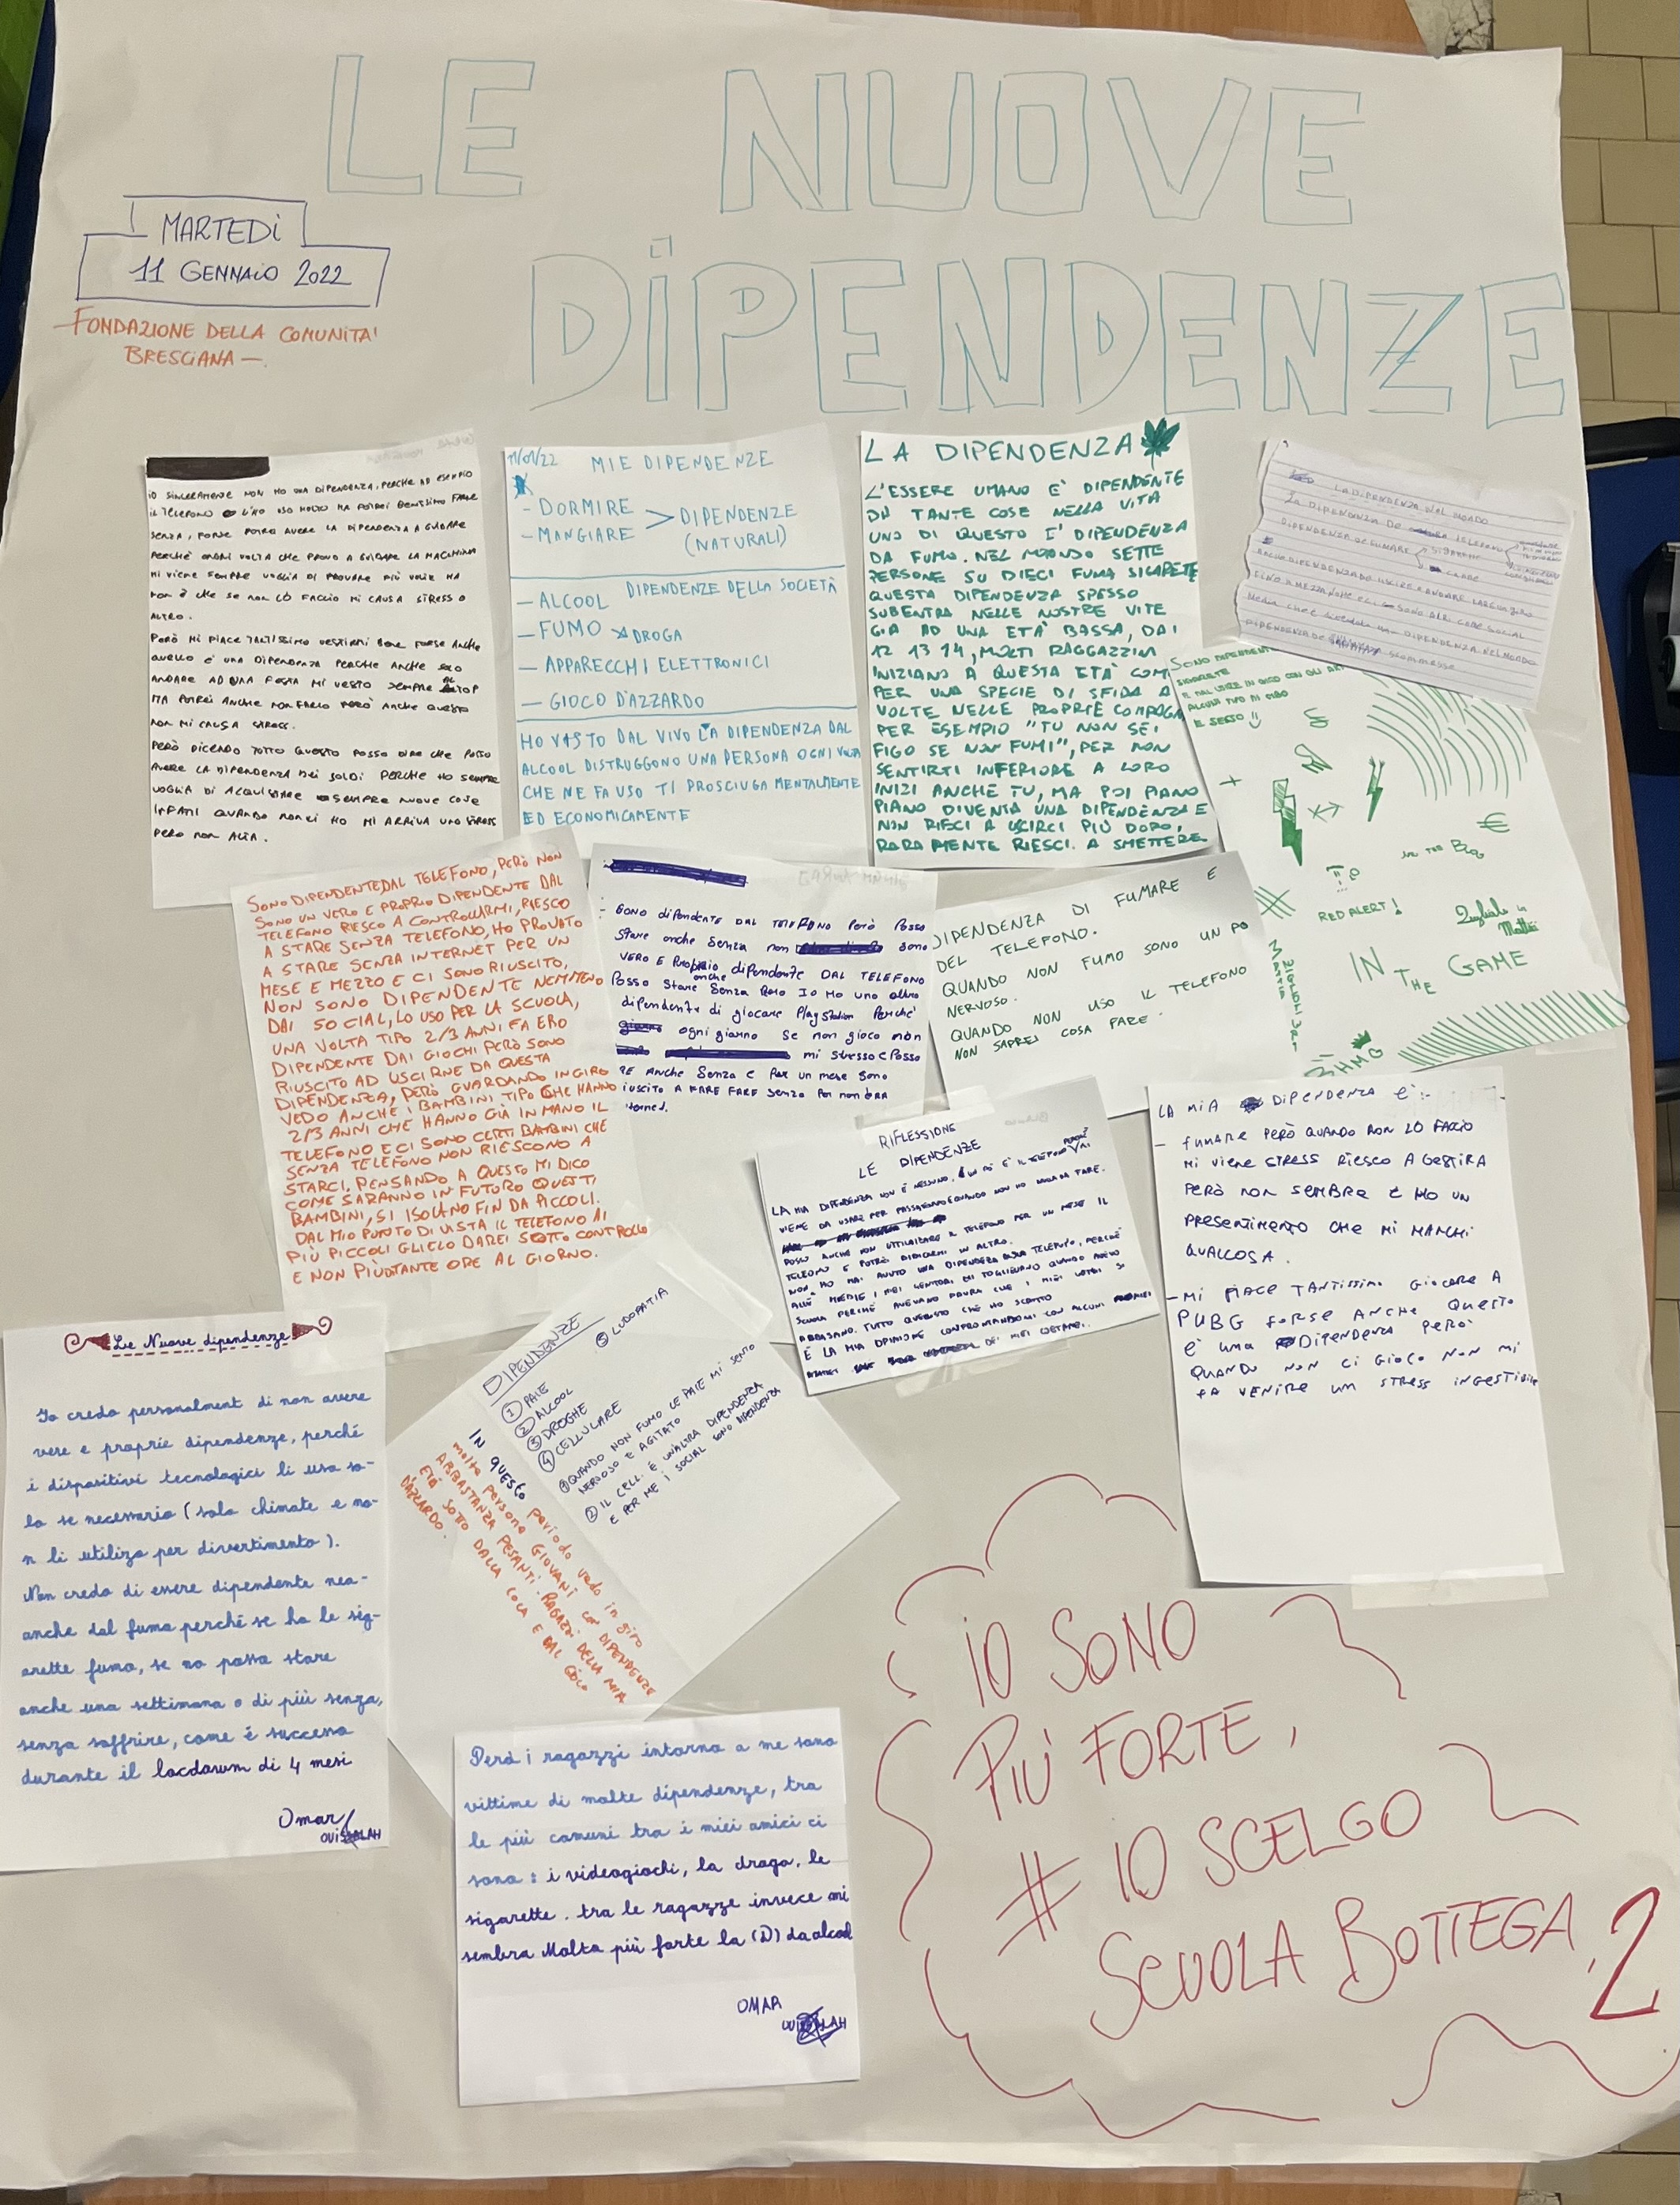 LE NUOVE
DIPENDENZE
MARTEDì
11 GENNAIO 2022
- FONDAZIONE DELLA COMUNITA'
BRESCIANA -.
IO SINCERAMENTE NON HO UNA DIPENDENZA, PERCHE AD ESEMPIO
IL TELEFONO L'HO USO MOLTO MA POTREI BENISSIMO FARNE
SENZA, FORSE POTREI AVERE LA DIPENDENZA A GUIDARE
PERCHÈ OGNI VOLTA CHE PROVO A GUIDARE LA MACCHINA
MI VIENE SEMPRE VOGLIA DI PROVARE PIÙ VOLTE MA
NON È CHE SE NON LÒ FACCIO MI CAUSA STRESS O
ALTRO.
PERÒ MI PIACE TANTISSIMO VESTIRMI BENE FORSE ANCHE
QUELLO E' UNA DIPENDENZA PERCHE ANCHE SOLO
ANDARE AD UNA FESTA MI VESTO SEMPRE AL TOP
MA POTREI ANCHE NON FARLO PERÒ ANCHE QUESTO
NON MI CAUSA STRESS.
PERÒ DICENDO TUTTO QUESTO POSSO DIRE CHE POSSO
AVERE LA DIPENDENZA DEI SOLDI PERCHE HO SEMPRE
VOGLIA DI ACQUISTARE SEMPRE NUOVE COSE
INFATTI QUANDO NON CI HO MI ARRIVA UNO STRESS
PERO NON ALTA.
11/01/22 MIE DIPENDENZE
- DORMIRE
- MANGIARE > DIPENDENZE
(NATURALI)
DIPENDENZE DELLA SOCIETÀ
- ALCOOL
- FUMO DROGA
- APPARECCHI ELETTRONICI
- GIOCO D'AZZARDO
HO VISTO DAL VIVO LA DIPENDENZA DAL
ALCOOL DISTRUGGONO UNA PERSONA OGNI VOLTA
CHE NE FA USO TI PROSCIUGA MENTALMENTE
ED ECONOMICAMENTE
LA DIPENDENZA
L'ESSERE UMANO E' DIPENDENTE
DI TANTE COSE NELLA VITA
UNO DI QUESTO E' DIPENDENZA
DA FUMO. NEL MONDO SETTE
PERSONE SU DIECI FUMA SIGARETE
QUESTA DIPENDENZA SPESSO
SUBENTRA NELLE NOSTRE VITE
GIA AD UNA ETÀ BASSA, DAI
12 13 14, MOLTI RAGAZZINI
INIZIANO A QUESTA ETÀ COM
PER UNA SPECIE DI SFIDA A
VOLTE NELLE PROPRIE COMPAGN
PER ESEMPIO "TU NON SEI
FIGO SE NON FUMI", PER NON
SENTIRTI INFERIORE A LORO
INIZI ANCHE TU, MA POI PIANO
PIANO DIVENTA UNA DIPENDENZA E
NON RIESCI A USCIRCI PIÙ DOPO,
RARAMENTE RIESCI A SMETTERE
LA DIPENDENZA NEL MONDO
LA DIPENDENZA DE TELEFONO
DIPENDENZA DE FUMARE
SINO A MEZZA NOTE E CI SONO ALTRE COSE SOCIAL
DIPENDENZA NEL MONDO
DIPENDENZA DE scommesse
SONO DIPENDENT
SIGARETTE
E DAL USCIRE IN GIRO CON GLI AM
ALCUNI TIPO DI CIBO
IL SESSO
€
IN THE BAG
RED ALERT!
IN THE GAME
SONO DIPENDENTE DAL TELEFONO, PERÒ NON
SONO UN VERO E PROPRIO DIPENDENTE DAL
TELEFONO RIESCO A CONTROLLARMI, RIESCO
A STARE SENZA TELEFONO, HO PROVATO
A STARE SENZA INTERNET PER UN
MESE E MEZZO E CI SONO RIUSCITO,
NON SONO DIPENDENTE NEMMENO
DAI SOCIAL, LO USO PER LA SCUOLA,
UNA VOLTA TIPO 2/3 ANNI FA ERO
DIPENDENTE DAI GIOCHI PERÒ SONO
RIUSCITO AD USCIRNE DA QUESTA
DIPENDENZA, PERÒ GUARDANDO IN GIRO
VEDO ANCHE I BAMBINI TIPO CHE HANNO
2/3 ANNI CHE HANNO GIÀ IN MANO IL
TELEFONO E CI SONO CERTI BAMBINI CHE
SENZA TELEFONO NON RIESCONO A
STARCI, PENSANDO A QUESTO MI DICO
COME SARANNO IN FUTURO QUESTI
BAMBINI, SI ISOLANO FIN DA PICCOLI.
DAL MIO PUNTO DI VISTA IL TELEFONO AI
PIÙ PICCOLI GLIELO DAREI SOTTO CONTROLLO
E NON PIÙ TANTE ORE AL GIORNO.
- SONO dipendente DAL TELEFONO Però Posso
stare anche senza non sono
VERO E PROPRIO dipendente DAL TELEFONO
Posso stare anche Senza Però Io Ho uno altro
dipendente di giocare Playstation Perché
ogni giorno se non gioco non
mi stresso e Posso
RE Anche Senza e Per un mese Sono
iuscito A FARE FARE Senza Poi non ERA
ternet.
DIPENDENZA DI FUMARE E
DEL TELEFONO.
QUANDO NON FUMO SONO UN PO
NERVOSO.
QUANDO NON USO IL TELEFONO
NON SAPREI COSA FARE.
RIFLESSIONE
LE DIPENDENZE
LA MIA DIPENDENZA NON È NESSUNO, È IL TELEFONO PERCHÈ MI
VIENE DA USARE PER PASSATEMPO QUANDO NON HO NULLA DA FARE.
POSSO ANCHE NON UTILIZZARE IL TELEFONO PER UN MESE IL
TELEFONO E POTREI DEDICARMI IN ALTRO.
NON HO MAI AVUTO UNA DIPENDENZA SUL TELEFONO, PERCHÈ
ALLE MEDIE I MIEI GENITORI MI TOGLIEVANO QUANDO AVEVO
SCUOLA PERCHÈ AVEVANO PAURA CHE I MIEI VOTI SI
ABBASSANO. TUTTO QUESTO CHE HO SCRITTO
È LA MIA OPINIONE CONFRONTANDOMI CON ALCUNI
DEI MIEI COETANEI.
LA MIA DIPENDENZA E':-
- FUMARE PERÒ QUANDO NON LO FACCIO
MI VIENE STRESS RIESCO A GESTIRA
PERÒ NON SEMBRA E HO UN
PRESENTIMENTO CHE MI MANCHI
QUALCOSA.
- MI PIACE TANTISSIMO GIOCARE A
PUBG FORSE ANCHE QUESTO
E' UNA DIPENDENZA PERÒ
QUANDO NON CI GIOCO NON MI
FA VENIRE UM STRESS INGESTIBILE
Le Nuove dipendenze
Io credo personalment di non avere
vere e proprie dipendenze, perché
i dispositivi tecnologici li uso so-
lo se necessario (solo chimate e no-
n li utilizo per divertimento).
Non credo di essere dipendente nea-
anche dal fumo perché se ho le sig-
arette fumo, se no posso stare
anche una settimana o di più senza,
senza soffrire, come è successo
durante il locdown di 4 mesi
Omar
DIPENDENZE
① PAIE
② ALCOOL
③ DROGHE
④ CELLULARE
⑤ LUDOPATIA
① QUANDO NON FUMO LE PAIE MI SENTO
NERVOSO E AGITATO
② IL CELL. È UN'ALTRA DIPENDENZA
E PER ME I SOCIAL SONO DIPENDENZA
IN QUESTO periodo vedo in giro
molte persone GIOVANI con DIPENDENZE
ABBASTANZA PESANTI. RAGAZZI DELLA MIA
ETÀ SOTTO DALLA COCA E DAL GIOCO
D'AZZARDO.
Però i ragazzi intorno a me sono
vittime di molte dipendenze, tra
le più comuni tra i miei amici ci
sono: i videogiochi, la droga, le
sigarette. tra le ragazze invece mi
sembra Molto più forte la (D) da alcool
OMAR
iO SONO
PIÙ FORTE,
# IO SCELGO
SCUOLA BOTTEGA.
2